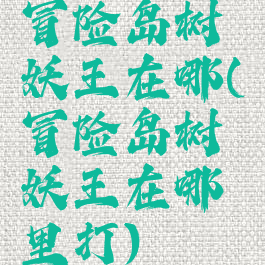 冒险岛树
妖王在哪(
冒险岛树
妖王在哪
里打)